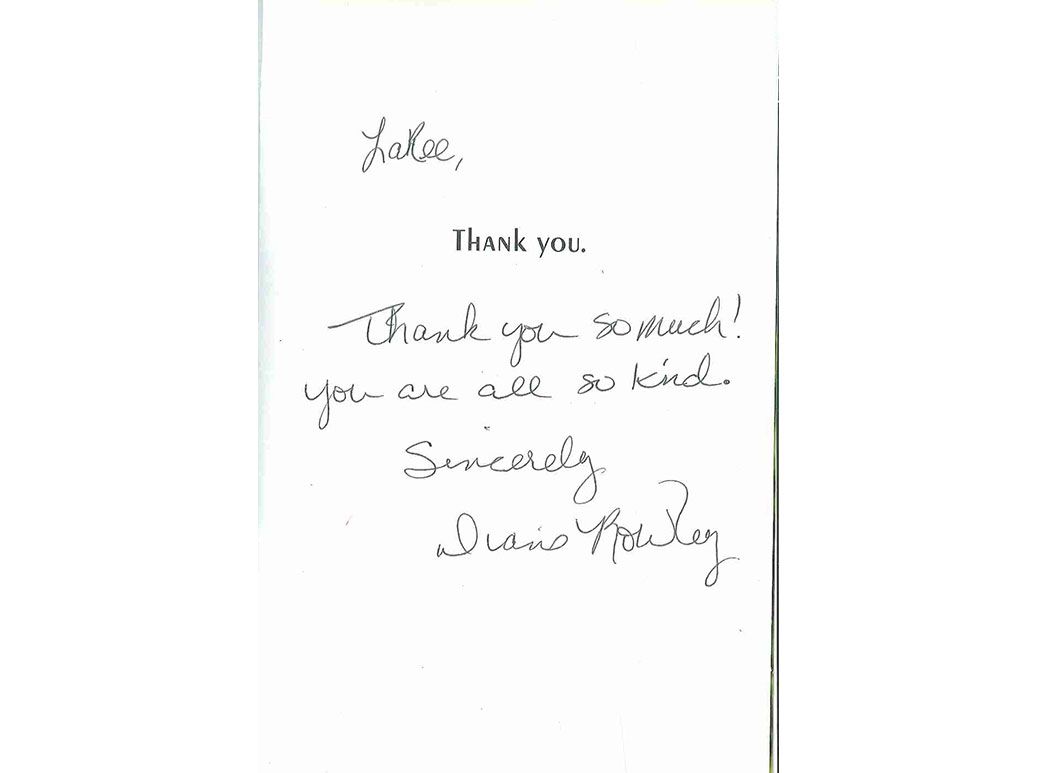 LaRee,
Thank you.
Thank you so much!
you are all so kind.
Sincerely
Rowley